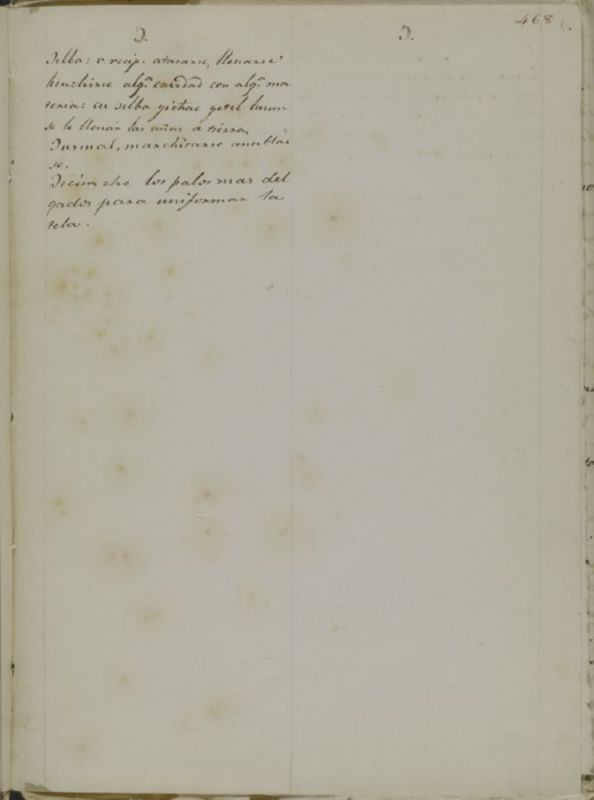 468
Ɔ. Ɔ.
Ɔilba: v. recip. atacarse, llenarse
henchirse algª cavidad con algª ma
teria: cu Ɔilba yichac yetel luum
se le llenan las uñas de tierra.
Ɔunmal, marchitarse aneblar
se.
che los palos mas del
gados para uniformar la
tela.